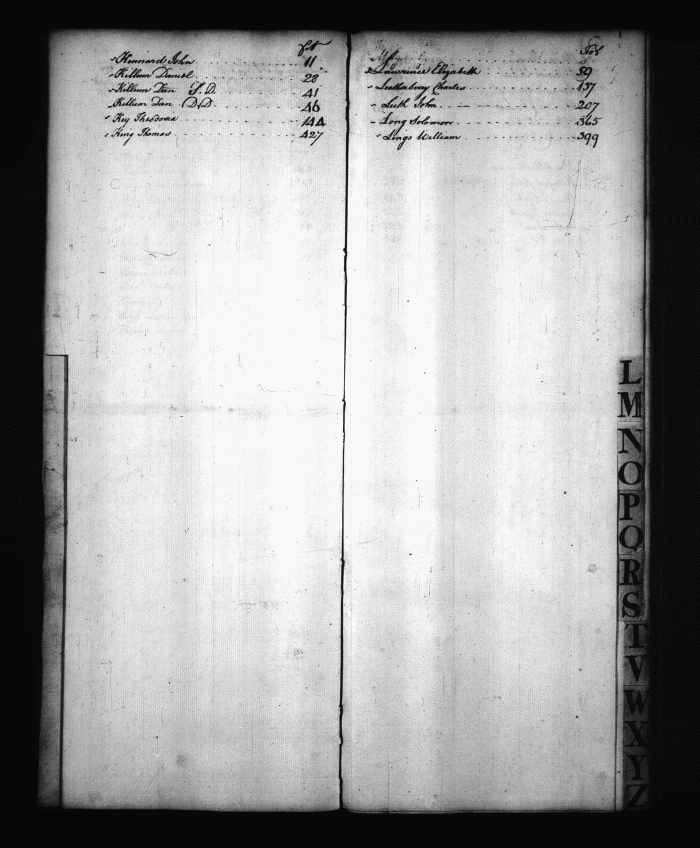 fol
Kennard John 11
Killum Daniel 28
Killum Dan S.D. 41
Killum Dan DD 46
Key Theodocia 144
King Thomas 427
Fol
Lawrence Elizabeth 59
Leatherbury Charles 137
Luth John 207
Long Solomon 365
Lingo William 399
L
M
N
O
P
Q
R
S
T
V
W
X
Y
Z